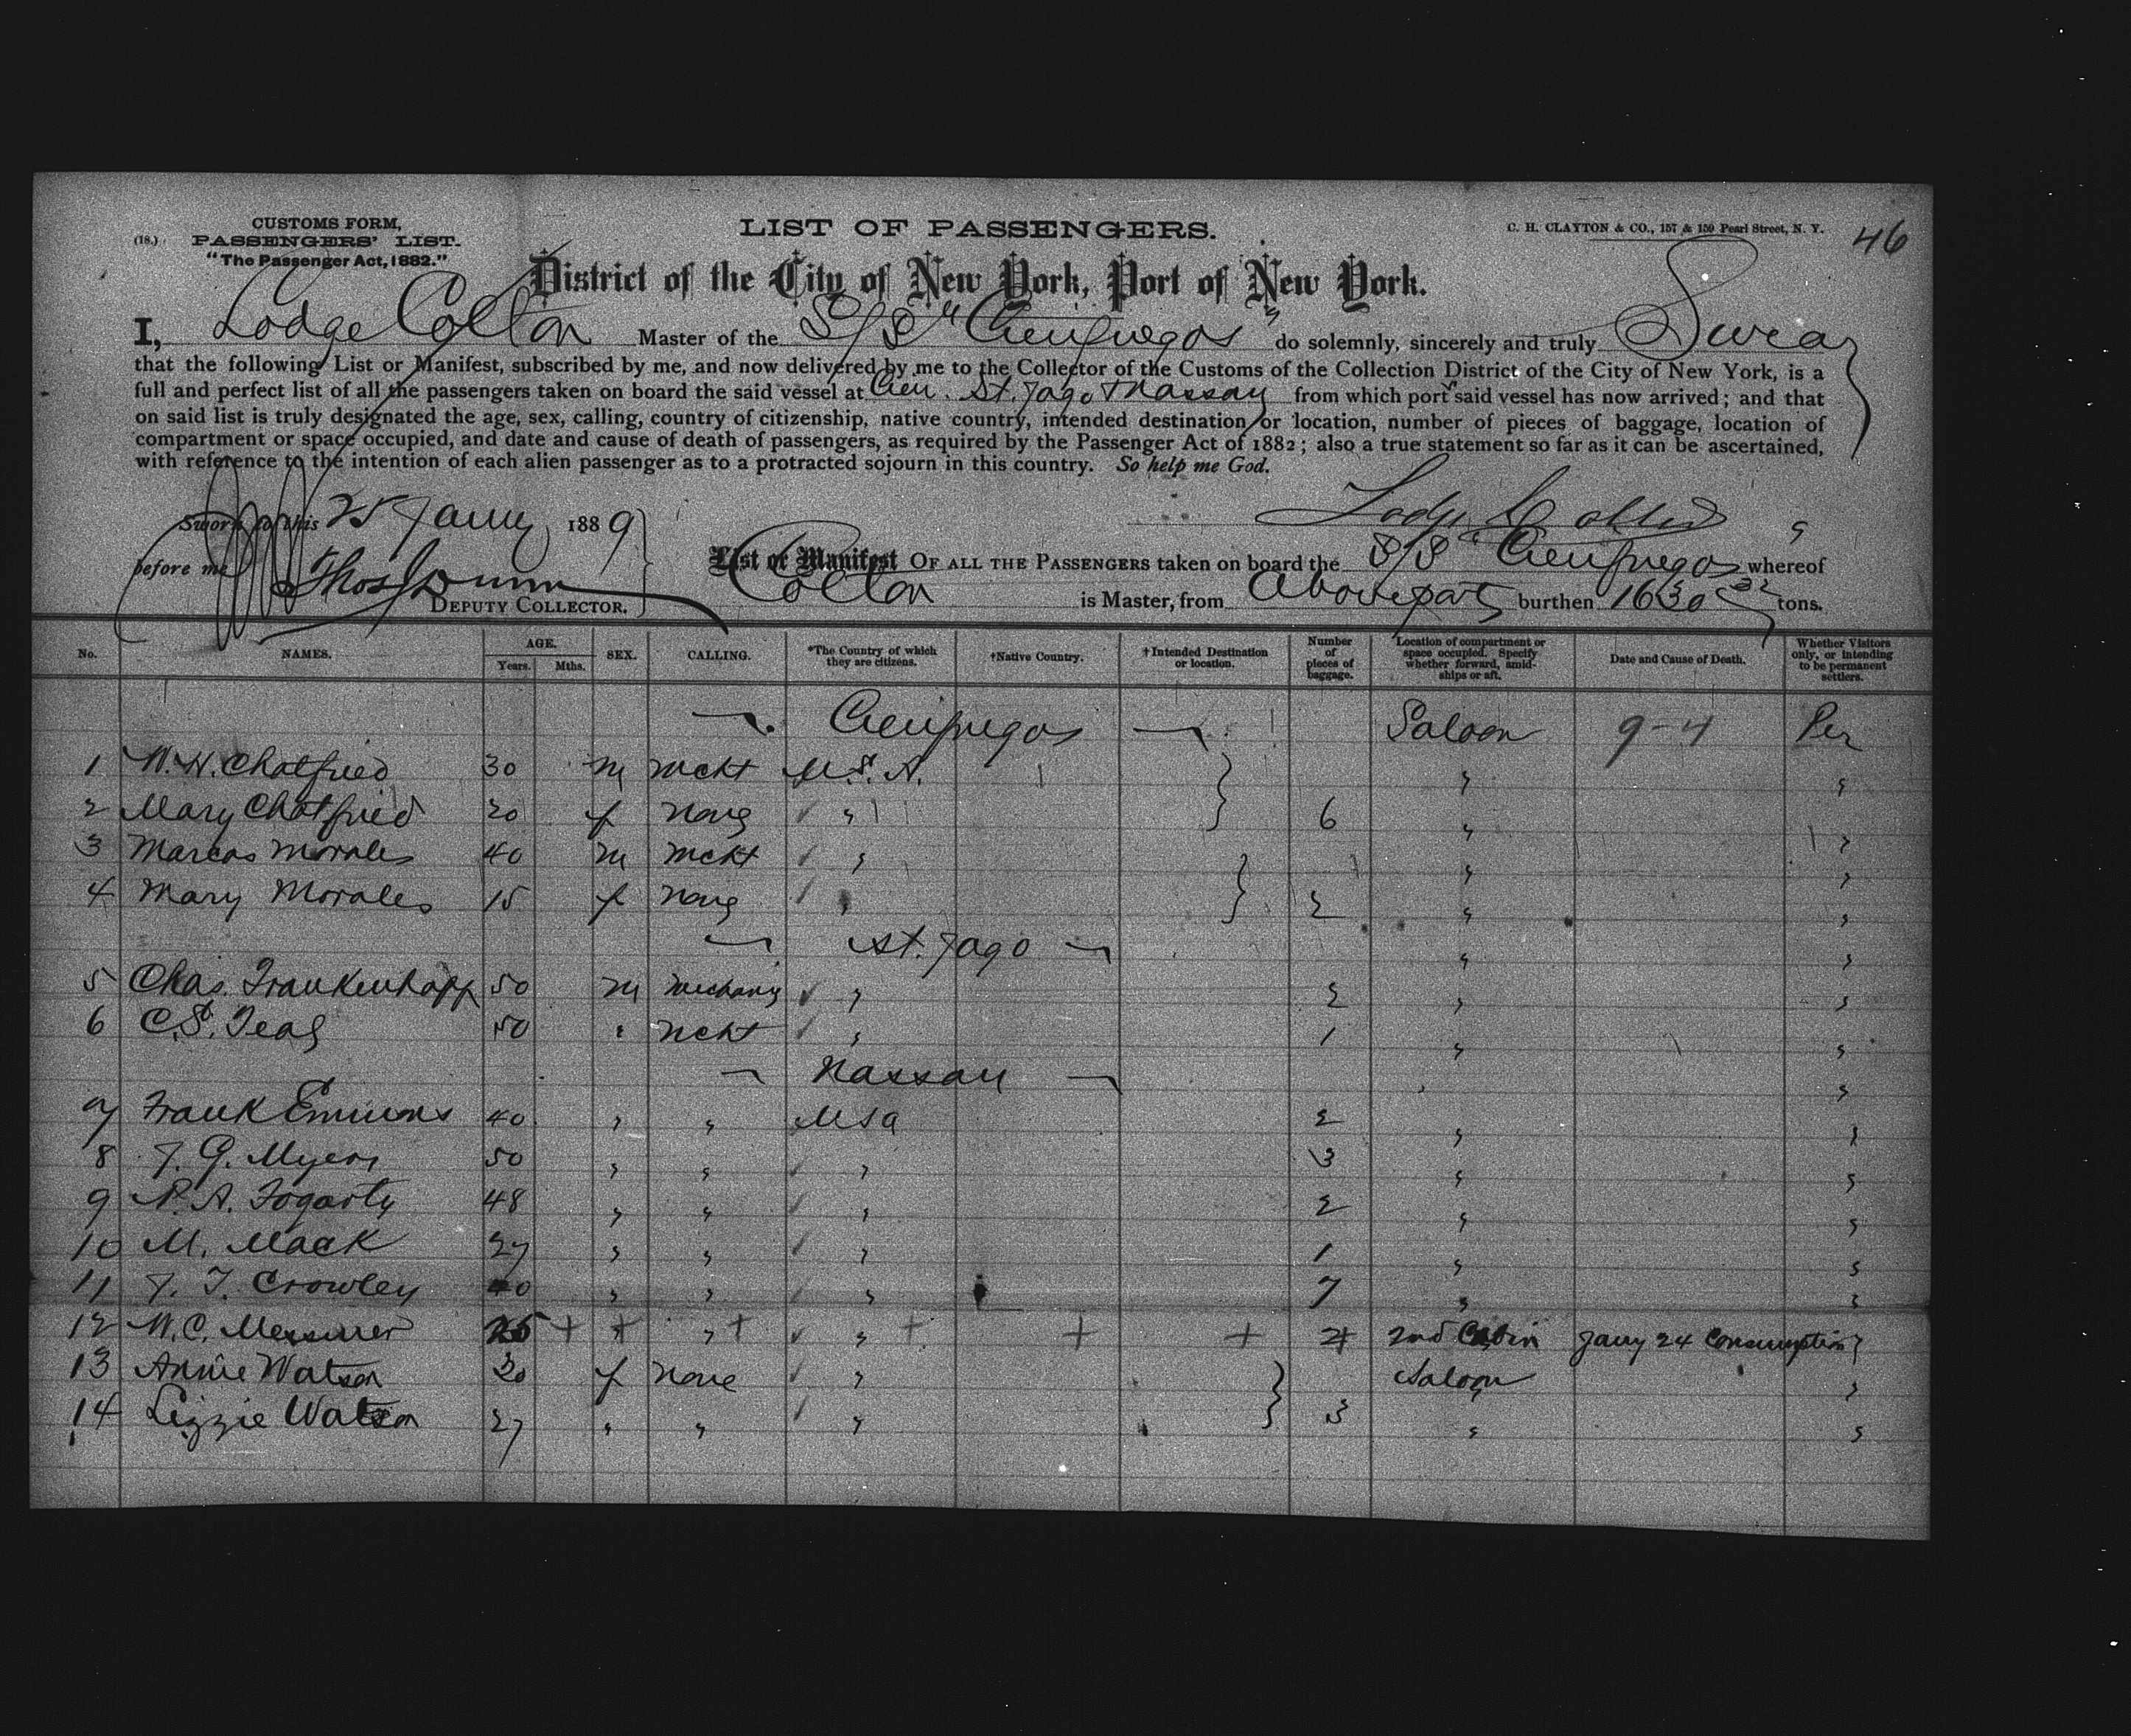 CUSTOMS FORM,
(18.) PASSENGERS' LIST.
"The Passenger Act, 1882."
LIST OF PASSENGERS.
C. H. CLAYTON & CO., 157 & 159 Pearl Street, N. Y.
46
District of the City of New York, Port of New York.
I, Lodge Colton Master of the S/S "Cienfuegos" do solemnly, sincerely and truly Swear
that the following List or Manifest, subscribed by me, and now delivered by me to the Collector of the Customs of the Collection District of the City of New York, is a
full and perfect list of all the passengers taken on board the said vessel at Cien. St. Jago & Nassau from which port said vessel has now arrived; and that
on said list is truly designated the age, sex, calling, country of citizenship, native country, intended destination or location, number of pieces of baggage, location of
compartment or space occupied, and date and cause of death of passengers, as required by the Passenger Act of 1882; also a true statement so far as it can be ascertained,
with reference to the intention of each alien passenger as to a protracted sojourn in this country. So help me God.
Sworn to this 25 Jany 1889
Lodge Colton
before me Thos Dunn
DEPUTY COLLECTOR.
List or Manifest OF ALL THE PASSENGERS taken on board the S/S "Cienfuegos whereof
Colton is Master, from Above ports burthen 1630 32 tons.
No. NAMES. AGE. Years. Mths. SEX. CALLING. *The Country of which they are citizens. †Native Country. †Intended Destination or location. Number of pieces of baggage. Location of compartment or space occupied. Specify whether forward, amidships or aft. Date and Cause of Death. Whether Visitors only, or intending to be permanent settlers.
Cienfuegos Saloon 9-4 Per
1 W. H. Chatfied 30 M Mcht U.S.A. " "
2 Mary Chatfied 20 f None " 6 " "
3 Marcos Morales 40 M Mcht " " "
4 Mary Morales 15 f None " 2 " "
St. Jago " "
5 Chas. Frankenhoff 50 M Mechanic " 2 " "
6 C.S. Teas 50 " Mcht " 1 " "
Nassau " "
7 Frank Emmons 40 " " USa 2 " "
8 J. G. Myers 50 " " " 3 " "
9 P. A. Fogarty 48 " " " 2 " "
10 M. Mack 27 " " " 1 " "
11 J. T. Crowley 40 " " " 7 " "
12 W.C. 25 + " + " + " + + + 2nd Cabin Jany 24 Consumption "
13 Annie Watson 30 f None " Saloon "
14 Lizzie Watson 27 " " " 3 " "